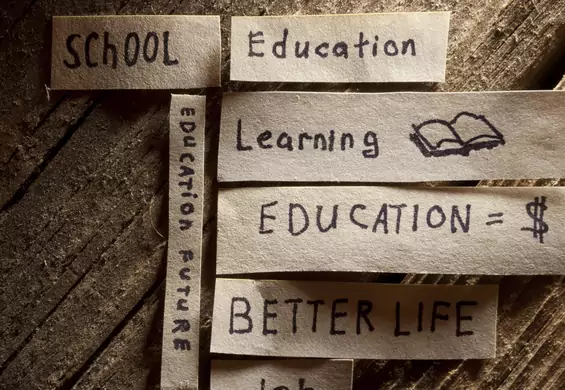 SChOOL
Education
Learning
EDUCATION FUTURE
EDUCATION = $
BETTER LIFE